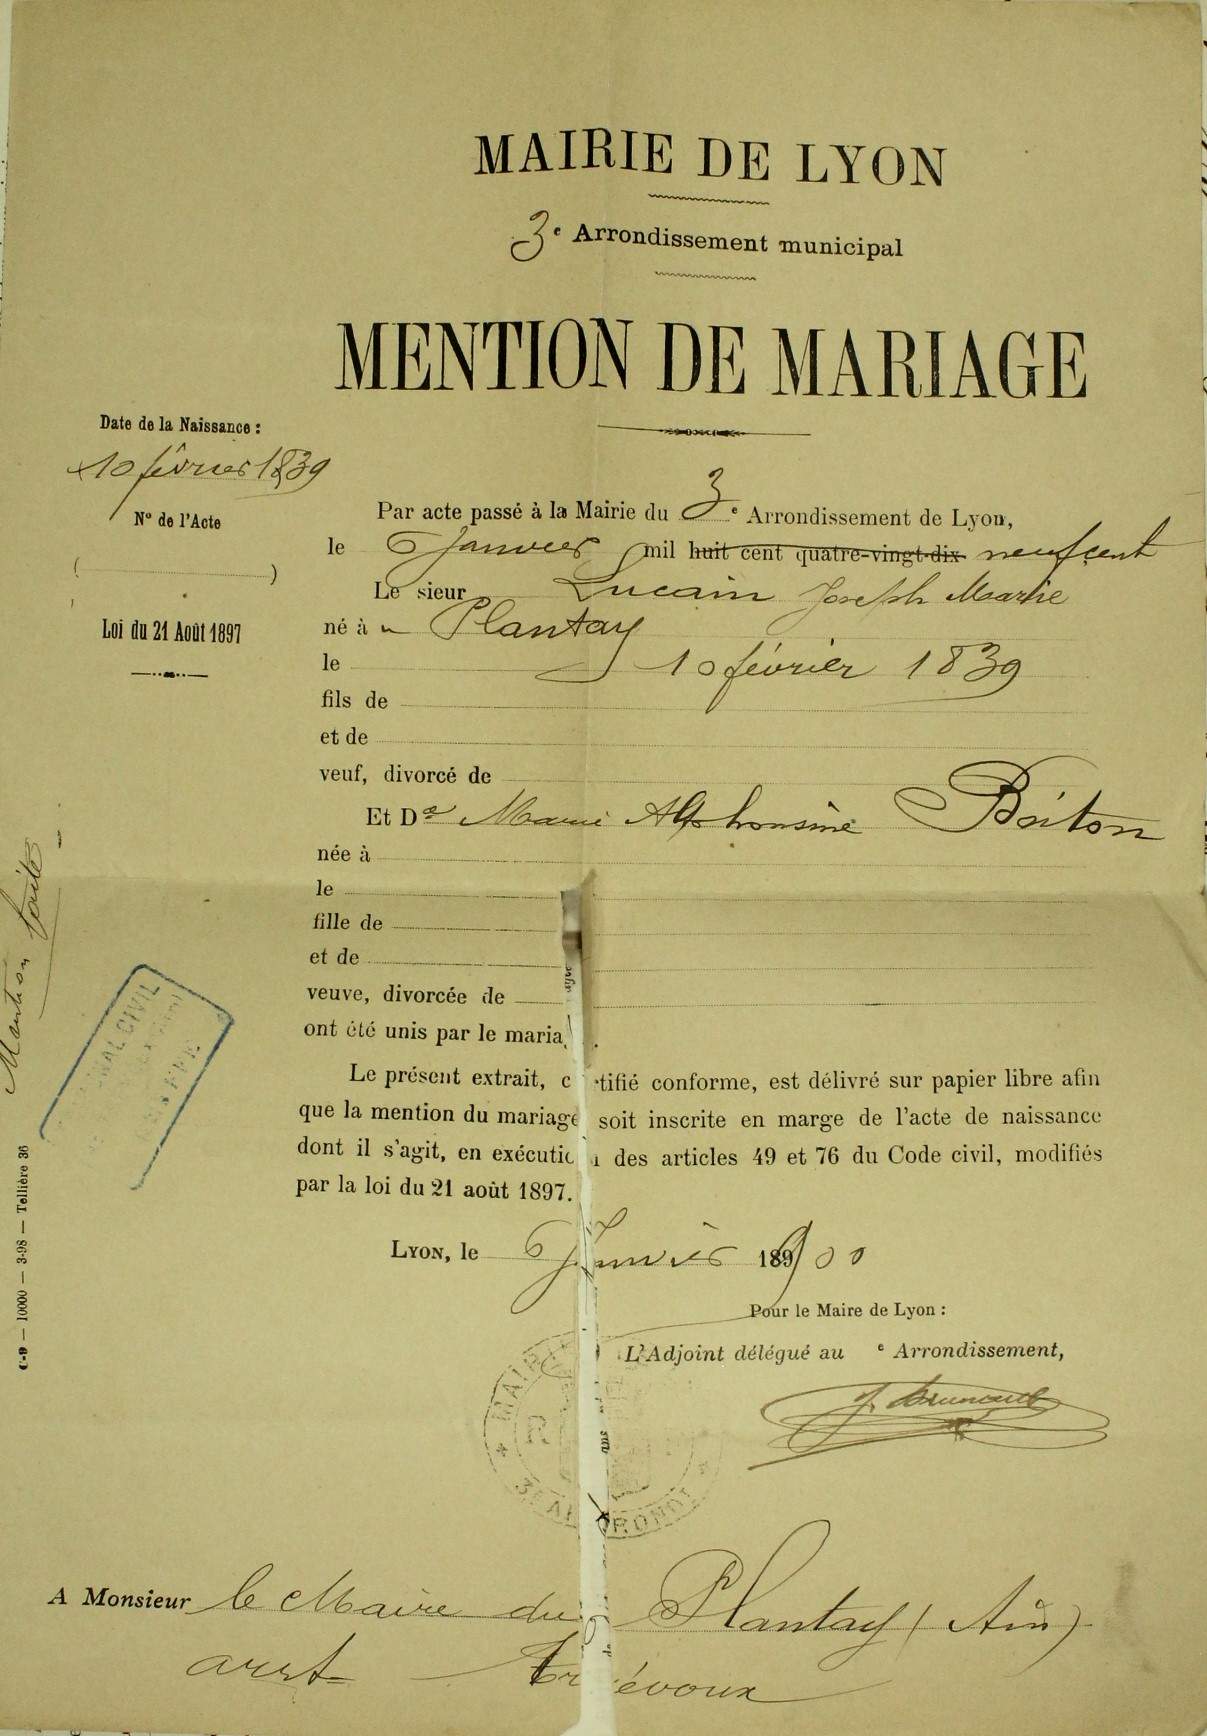 MAIRIE DE LYON
3e Arrondissement municipal
MENTION DE MARIAGE
Date de la Naissance :
10 février 1839
N° de l'Acte
( )
Loi du 21 Août 1897
Par acte passé à la Mairie du 3e Arrondissement de Lyon,
le 6 Janvier mil huit cent quatre-vingt-dix neuf cent
Le sieur Lucain Joseph Marie
né à Plantay
le 10 février 1839
fils de
et de
veuf, divorcé de
Et De Marie Alphonsine Bóiton
née à
le
fille de
et de
veuve, divorcée de
ont été unis par le maria
Le présent extrait, c tifié conforme, est délivré sur papier libre afin
que la mention du mariage soit inscrite en marge de l'acte de naissance
dont il s'agit, en exécutio des articles 49 et 76 du Code civil, modifiés
par la loi du 21 août 1897.
LYON, le 6 Janvier 1900
Pour le Maire de Lyon :
L'Adjoint délégué au e Arrondissement,
A Monsieur le Maire du Plantay (Ain)
arrt Trévoux
Mention faite
CIVIL
C-9 — 10000 — 3-98 — Tellière 36
MAIRI
3E AR RONDT